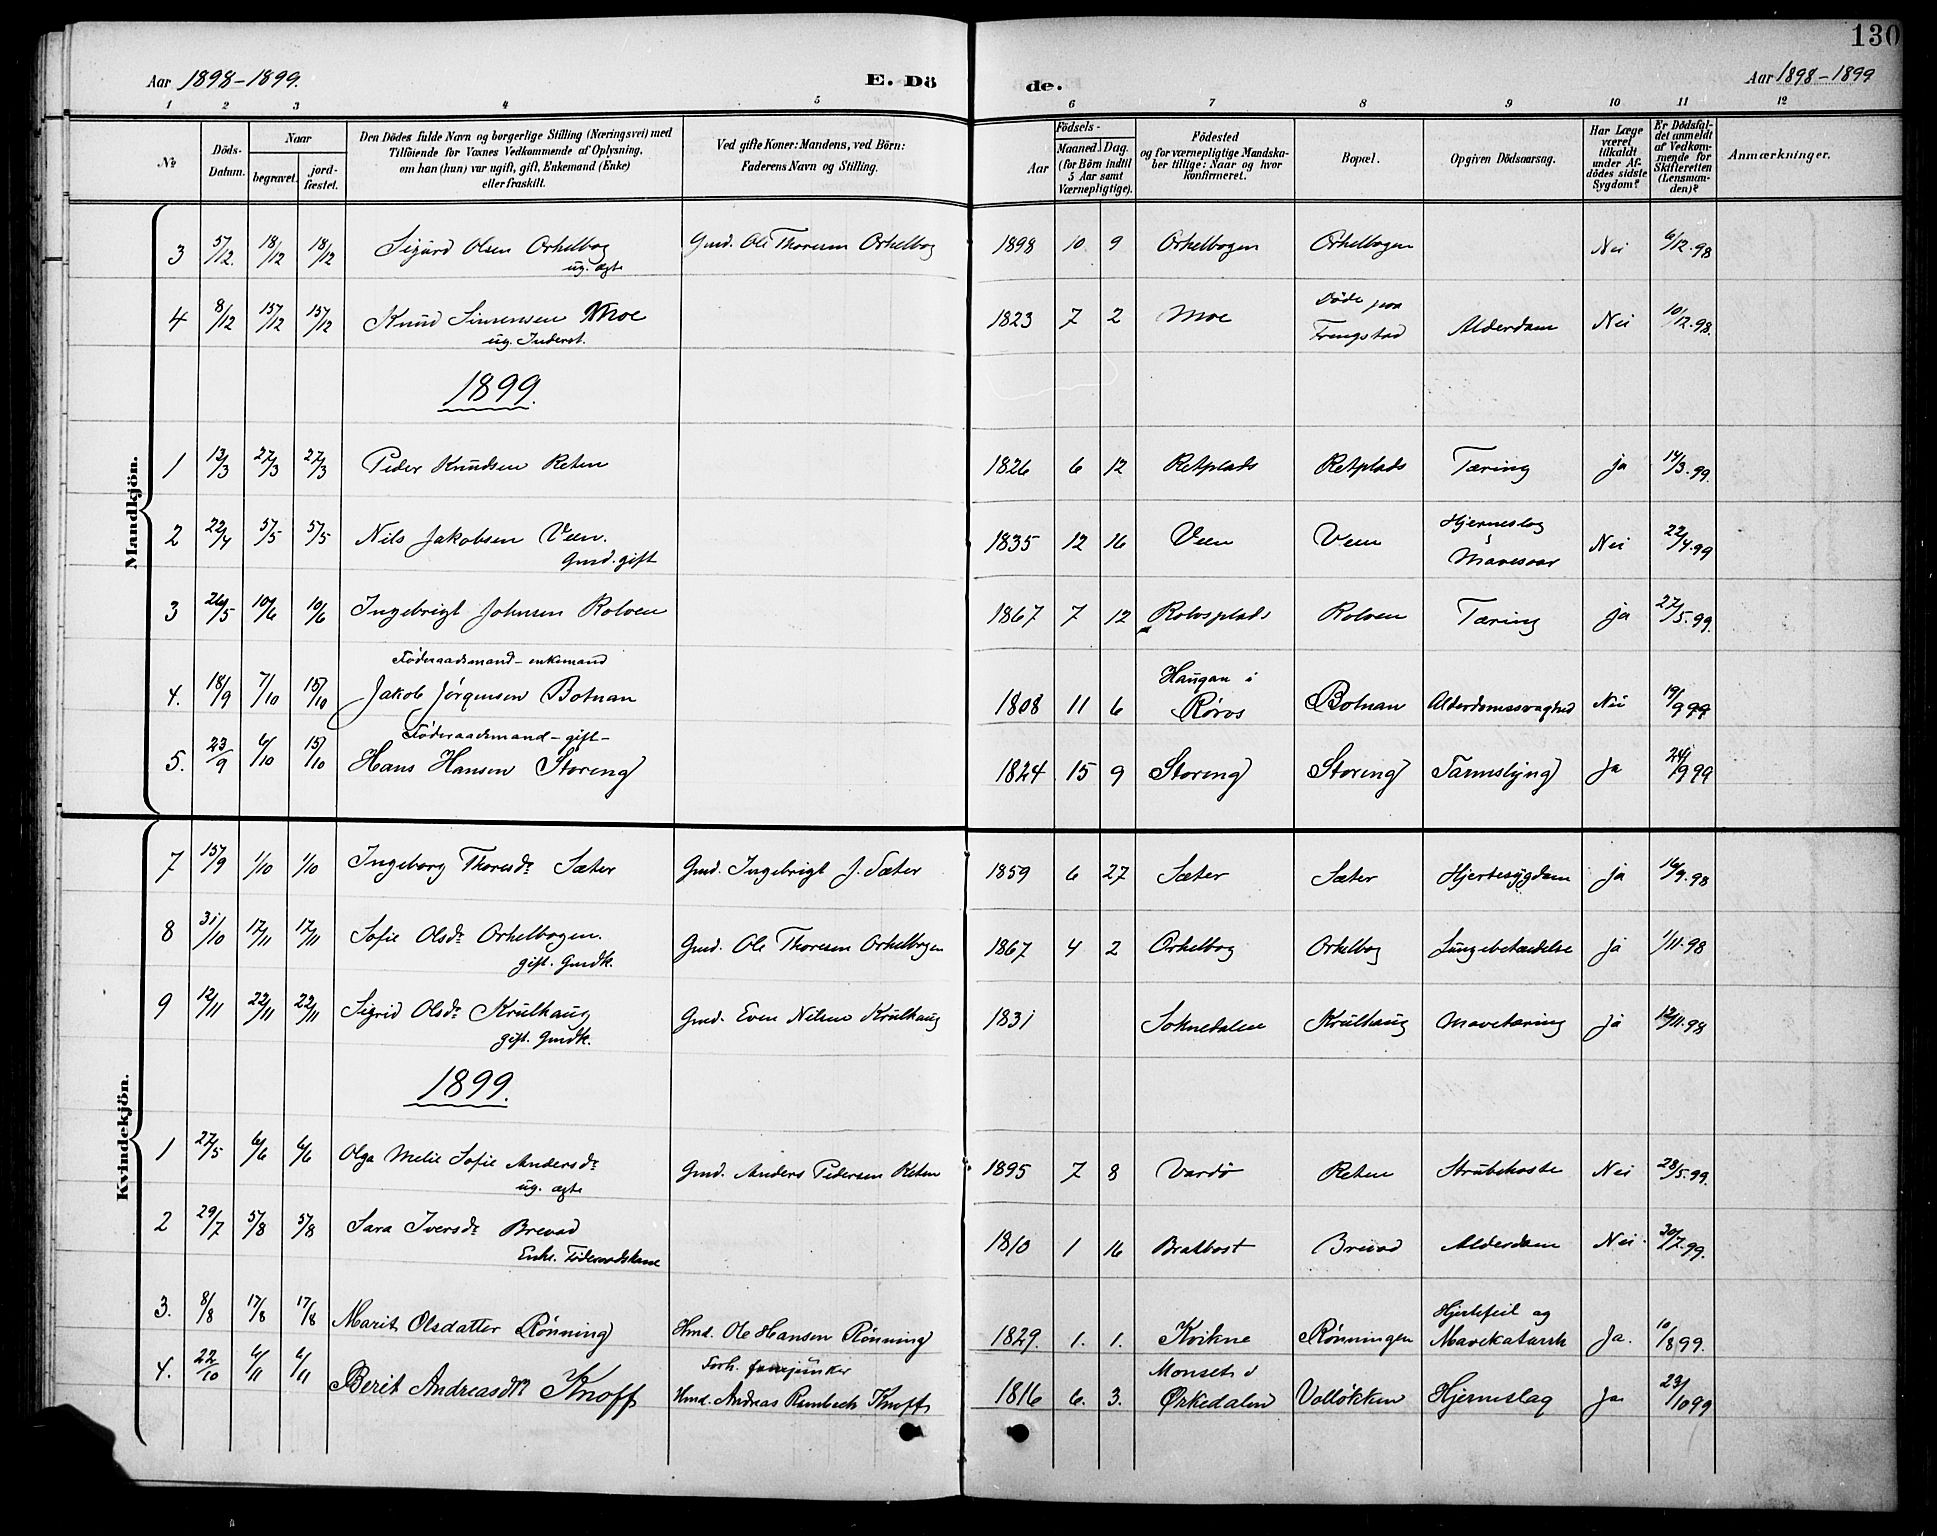 130
Aar 1898-1899. E. Dö de. Aar 1898-1899
1 2 3 4 5 6 7 8 9 10 11 12
No
Döds-Datum.
Naar
begravet. jord-fæstet.
Den Dödes fulde Navn og borgerlige Stilling (Næringsvei) med
Tilföiende for Voxnes Vedkommende af Oplysning,
om han (hun) var ugift, gift, Enkemand (Enke)
eller fraskilt.
Ved gifte Koner: Mandens, ved Börn:
Faderens Navn og Stilling.
Födsels-
Aar Maaned. Dag.
(for Börn indtil
5 Aar samt
Værnepligtige).
Födested
og for værnepligtige Mandska-
ber tillige: Naar og hvor
konfirmeret.
Bopæl.
Opgiven Dödsaarsag.
Har Læge
været
tilkaldt
under Af-
dödes sidste
Sygdom?
Er Dödsfal-
det anmeldt
af Vedkom-
mende for
Skifteretten
(Lensman-
den)?
Anmærkninger.
Mandkjön.
3 5/12. 18/12 18/12 Sigurd Olsen Orkelbog Gmd. Ole Thoresen Orkelbog 1898 10 9 Orkelbogen Orkelbogen Nei 6/12.98
ug. ægte
4 8/12 15/12 15/12 Knud Simensen Moe 1823 7 2 Moe Döde paa Frengstad Alderdom Nei 10/12.98.
ug. Inderst.
1899.
1 13/3 27/3 27/3 Peder Knudsen Reten 1826 6 12 Retplads Retplads Tæring ja 14/3.99.
2 22/4 5/5 5/5 Nils Jakobsen Veen. 1835 12 16 Veen Veen Hjerneslag Mavesaar Nei 22/4.99
Gmd. gift
3 26/5 10/6 10/6 Ingebrigt Johnsen Rolven 1867 7 12 Rolvsplads Rolven Tæring ja 27/5.99.
Föderaadsmand - enkemand
4. 18/9 7/10 15/10 Jakob Jørgensen Botnan 1808 11 6 Haugan i Røros Botnan Alderdomssvaghed Nei 19/9 99
Föderaadsmand - gift -
5. 23/9 6/10 15/10 Hans Hansen Storeng 1824 15 9 Storeng Storeng Tarmslyng Ja 24/9 99
Kvindekjön.
7 15/9 1/10 1/10 Ingeborg Thoresdr Sæter Gmd. Ingebrigt J. Sæter 1859 6 27 Sæter Sæter Hjertesygdom ja 16/9.98
8 31/10 17/11 17/11 Sofie Olsdr Orkelbogen. Gmd. Ole Thoresen Orkelbogen 1867 4 2 Orkelbog Orkelbog Lungebetændelse ja 1/11.98
gift. Gmdk.
9 12/11 22/11 22/11 Sigrid Olsdr Krulhaug Gmd. Even Nilsen Krulhaug 1831 Soknedalen Krulhaug Mavetæring ja 12/11.98
gift. Gmdk.
1899.
1 27/5 6/6 6/6 Olga Melie Sofie Andersdr Gmd. Anders Pedersen Reten 1895 7 8 Vardø Reten Strubehoste Nei 28/5.99.
ug. ægte
2 29/7 5/8 5/8 Sara Iversdr Brevad 1810 1 16 Bratbost Brevad Alderdom Nei. 30/7.99.
Enke. Föderaadskone
3. 8/8 17/8 17/8 Marit Olsdatter Rønning Hmd. Ole Hansen Rønning 1829. 1. 1. Kvikne Rønningen Hjertefeil og Mavekatarrh Ja. 10/8 99.
4. 22/10 6/11 6/11 Berit Andreasdtr Knoff Forh. fanejunker Hmd. Andreas Rambech Knoff 1816 6. 3. Monset i Ørkedalen Volløkken Hjerneslag Ja 23/10 99